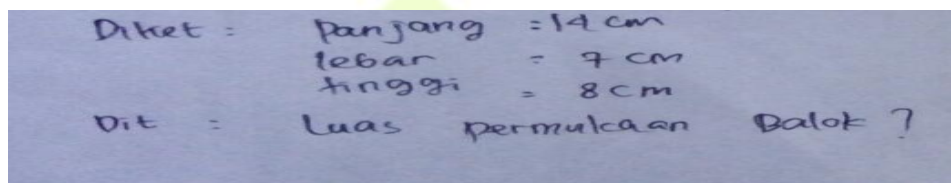 Diket : Panjang = 14 cm
lebar = 7 cm
tinggi = 8 cm
Dit : Luas permukaan Balok ?